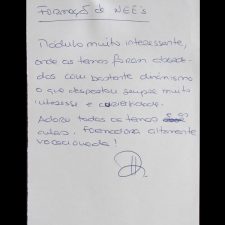 Formação de NEE's
Módulo muito interessante,
onde os temas foram aborda-
dos com bastante dinamismo
o que despertou sempre muito
interesse e curiosidade.
Adorei todos os temas
aulas. Formadora altamente
vocacionada!